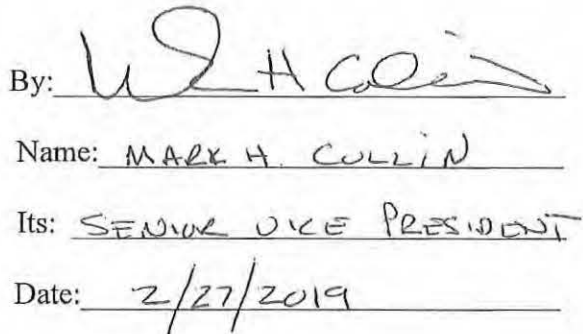 By: Mark H Collin
Name: MARK H. COLLIN
Its: SENIOR VICE PRESIDENT
Date: 2/27/2019